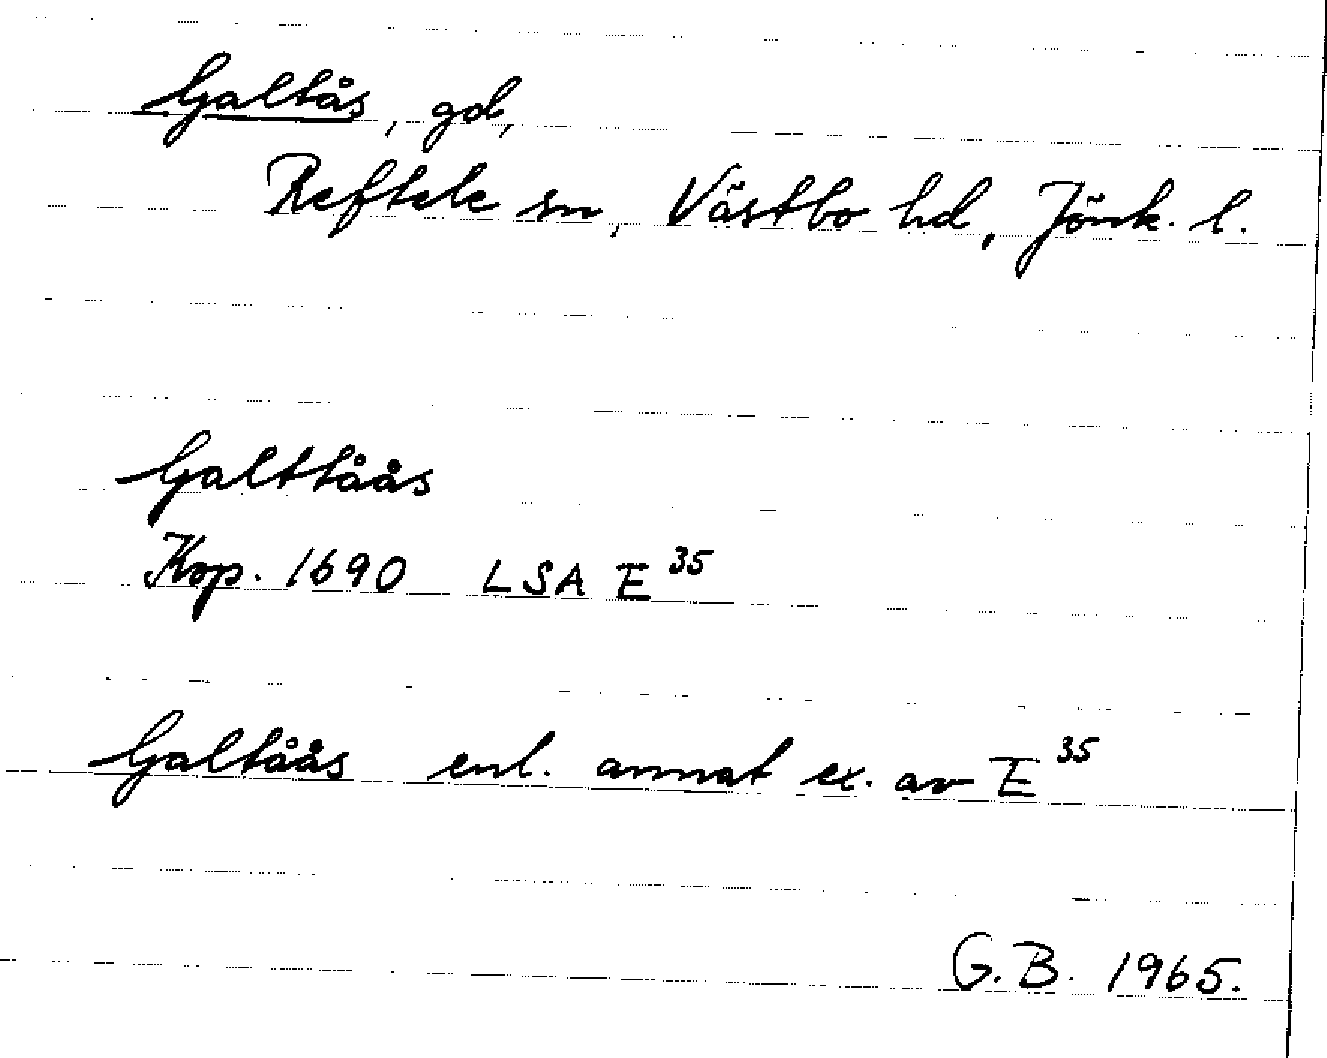 Galtås, gd,
Reftele sn, Västbo hd, Jönk. l.
Galttåås
Kop. 1690 LSA E 35
Galtåås enl. annat ex. av E 35
G.B. 1965.